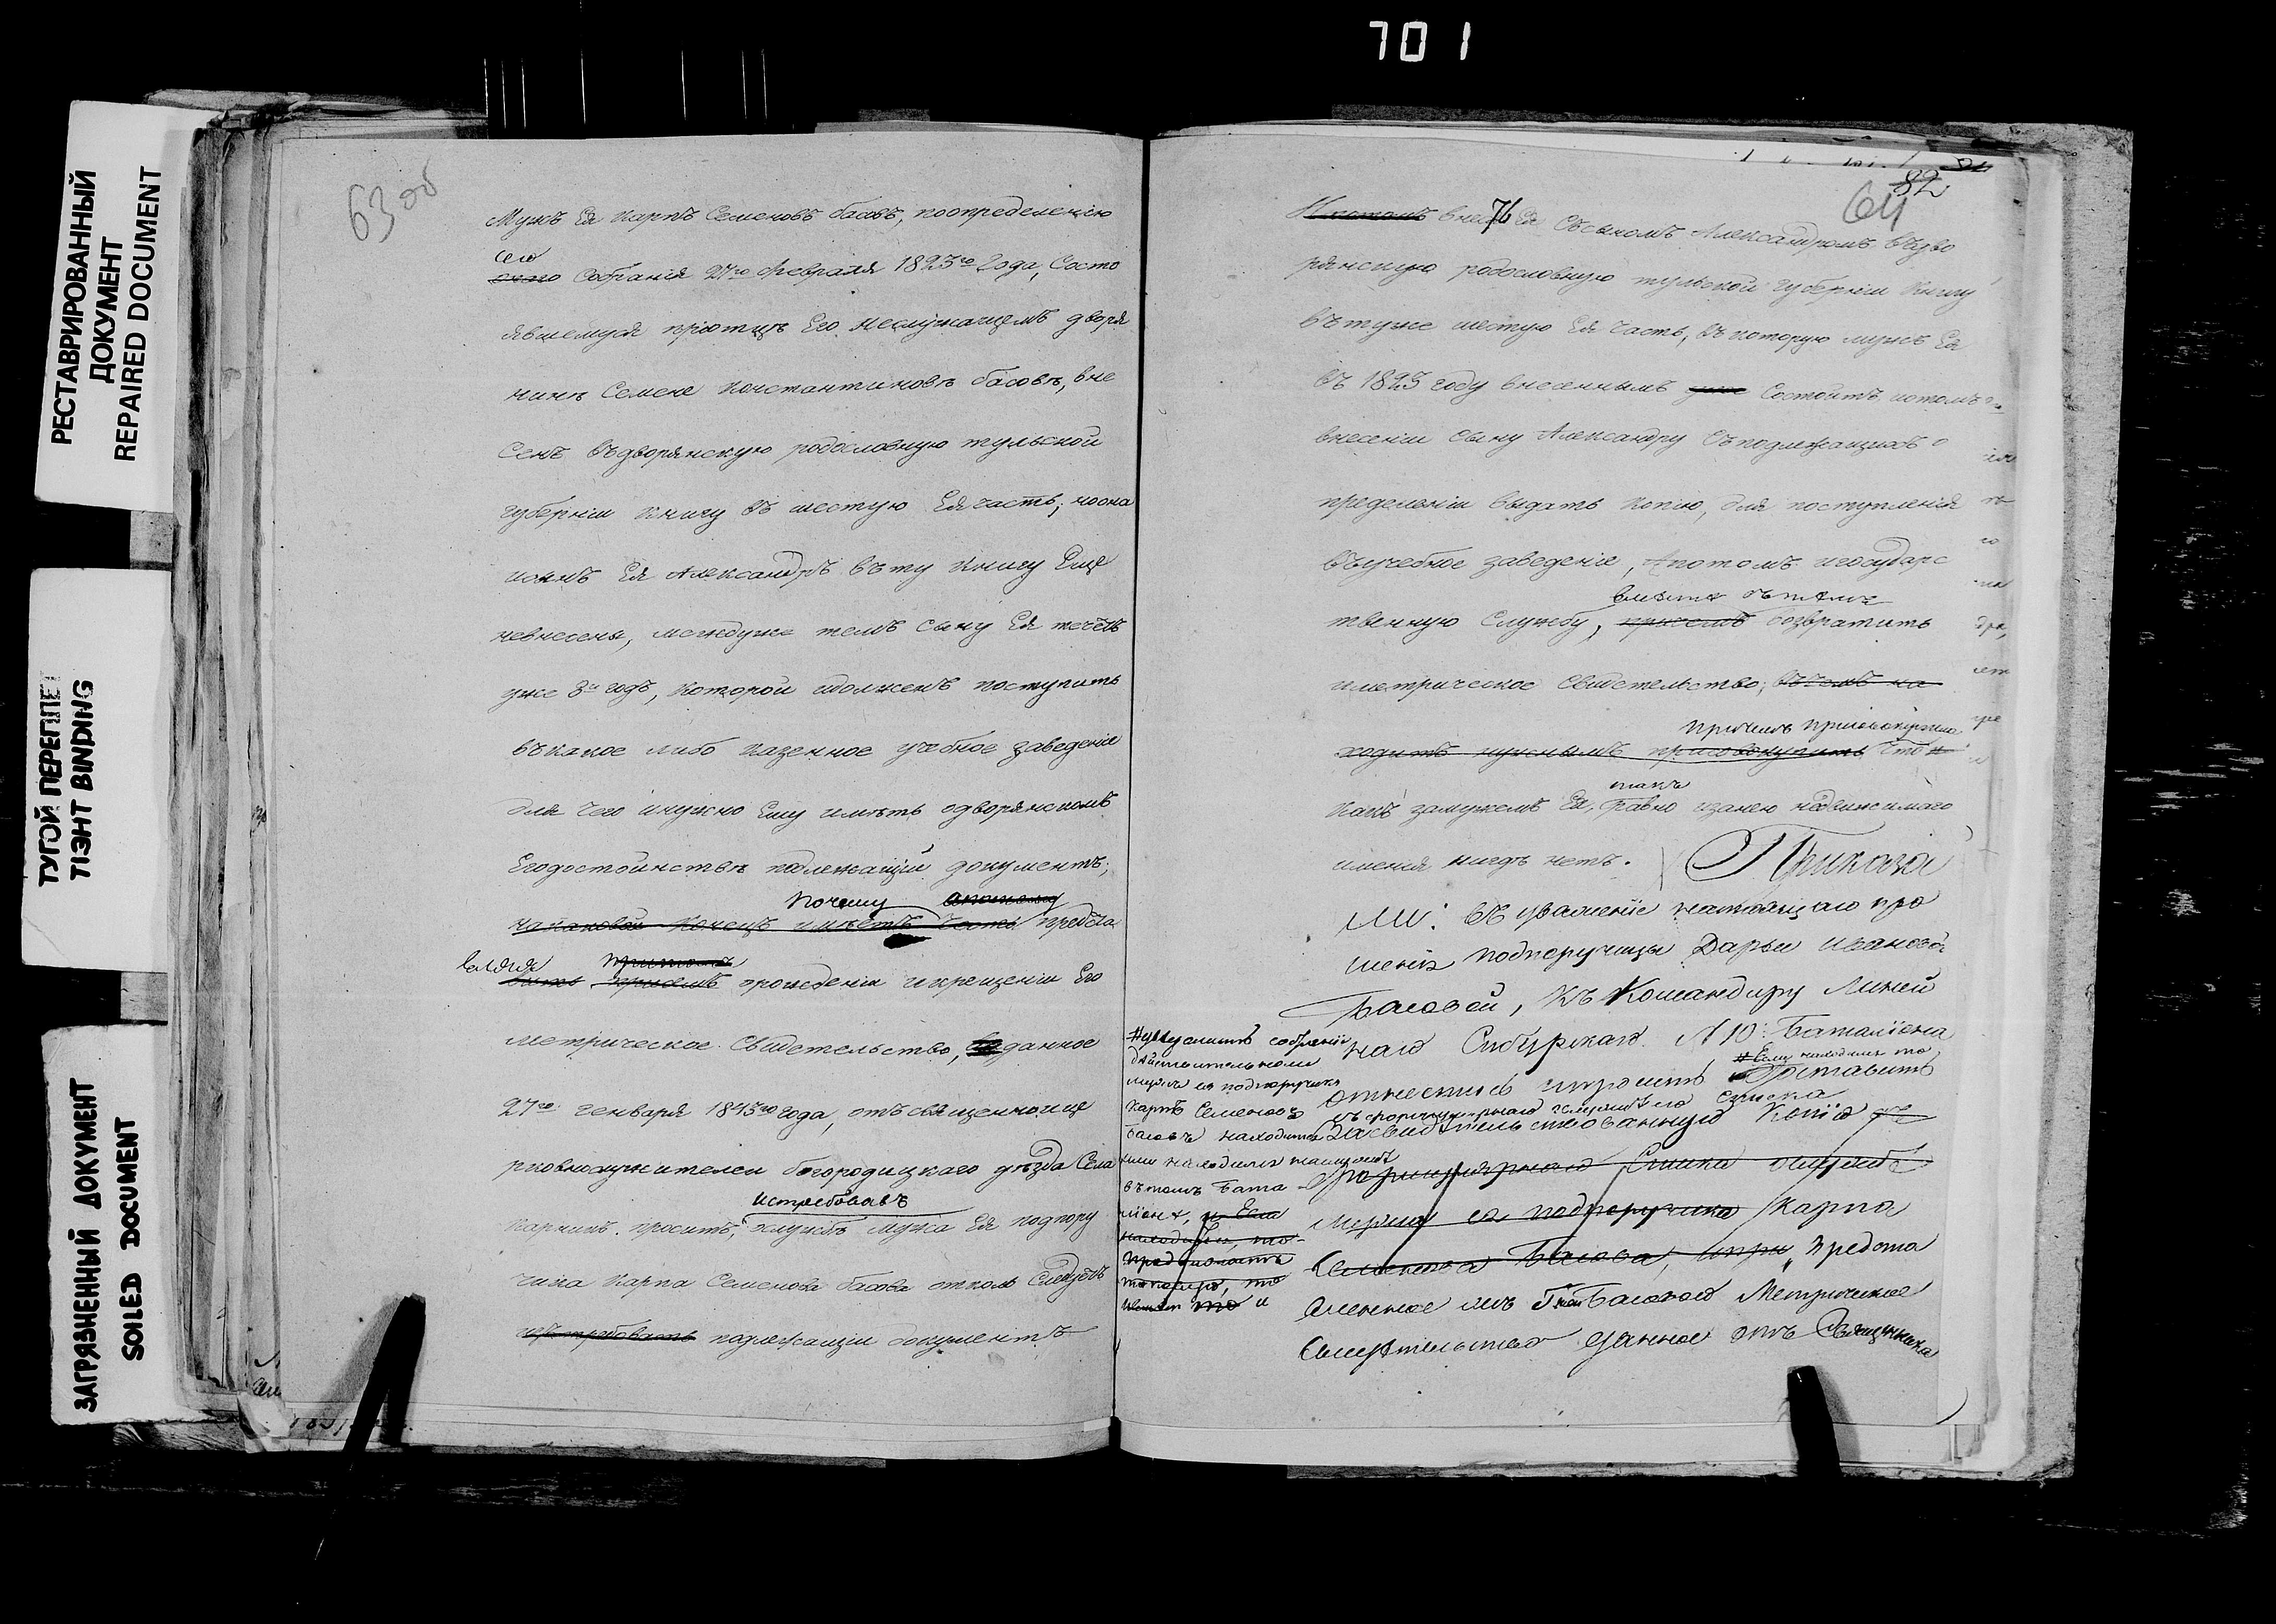 701
РЕСТАВРИРОВАННЫЙ
ДОКУМЕНТ
REPAIRED DOCUMENT
ТУГОЙ ПЕРЕПЛЕТ
TIGHT BINDING
ЗАГРЯЗНЕННЫЙ ДОКУМЕНТ
SOILED DOCUMENT
63 об
Мужъ Ея Карпъ Семеновъ басовъ, поопределенію
сего
Собранія 27го Февраля 1823го Года, Состо
явшемуся приотцѣ Его неслужащемъ дворя
нинѣ Семене Константиновѣ басовѣ, вне
Сенъ въдворянскую родословную тульской
губерніи Книгу въ шестую Ея часть; но она
Ея Александръ въту Книгу Еще
невнесены, междуже темъ сыну Ея течетъ
уже 8й годъ, которой идолженъ поступить
въкакое либо казенное учебное заведеніе
для чего инужно Ему иметь одворянскомъ
Егодостоинстве подлежащій документъ;
Почему
на каковой Конецъ имеетъ Честь предста
вляя
орожденіи икрещеніи Его
метрическое Свидетельство, данное
27го генваря 1843го года, отъ священно ице
рковнослужителей богородицкаго уѣзда Села
истребовавъ
просить, службѣ мужа Ея подпору
чика Карпа Семенова басова отколь Следуетъ
истребовать подлежащій документъ
82
64
76
И потомъ внести Ея Съсыномъ Александромъ въдво
рянскую родословную тульской губерніи Книгу
въ туже шестую Ея Часть, въ которую мужъ Ея
въ 1823 году внесеннымъ уже Состоитъ, иотомъ
внесеніи Сыну Александру съподлежащихъ о
пределеніи выдать Копію, для поступленія
въучебное заведеніе, Апотомъ игосударс
вместе съ темъ
твенную Службу, причемъ возвратить
иметрическое Свидетельство, въчемъ на
причемъ присовокупила
ходитъ нужнымъ присовокупить Что
такъ
какъ замужемъ Ея, равно изанею недвижимаго
именія нигдѣ нетъ. Приказа
ли: въ уваженіе настоящаго про
шенія подпоручицы Дарьи Ивановой
Басовой, къ Командиру Линей
наго Сибирскаго №10: Баталіона
# Если находится то
отнестись ипросить доставить
списка
засвидѣтельствованную Копію
Формулярнаго Списка
мужа ея подпоручика Карпа
Семенова Басова, при предста
вленное Басовою Метрическое
Свидѣтельство данное отъ Священника
# увѣдомить собраніе
действительноли
мужъ ея подпоручикъ
Карпъ Семеновъ
Басовъ находится
или находился
въ томъ Бата
ліоне, и Если
находится, то